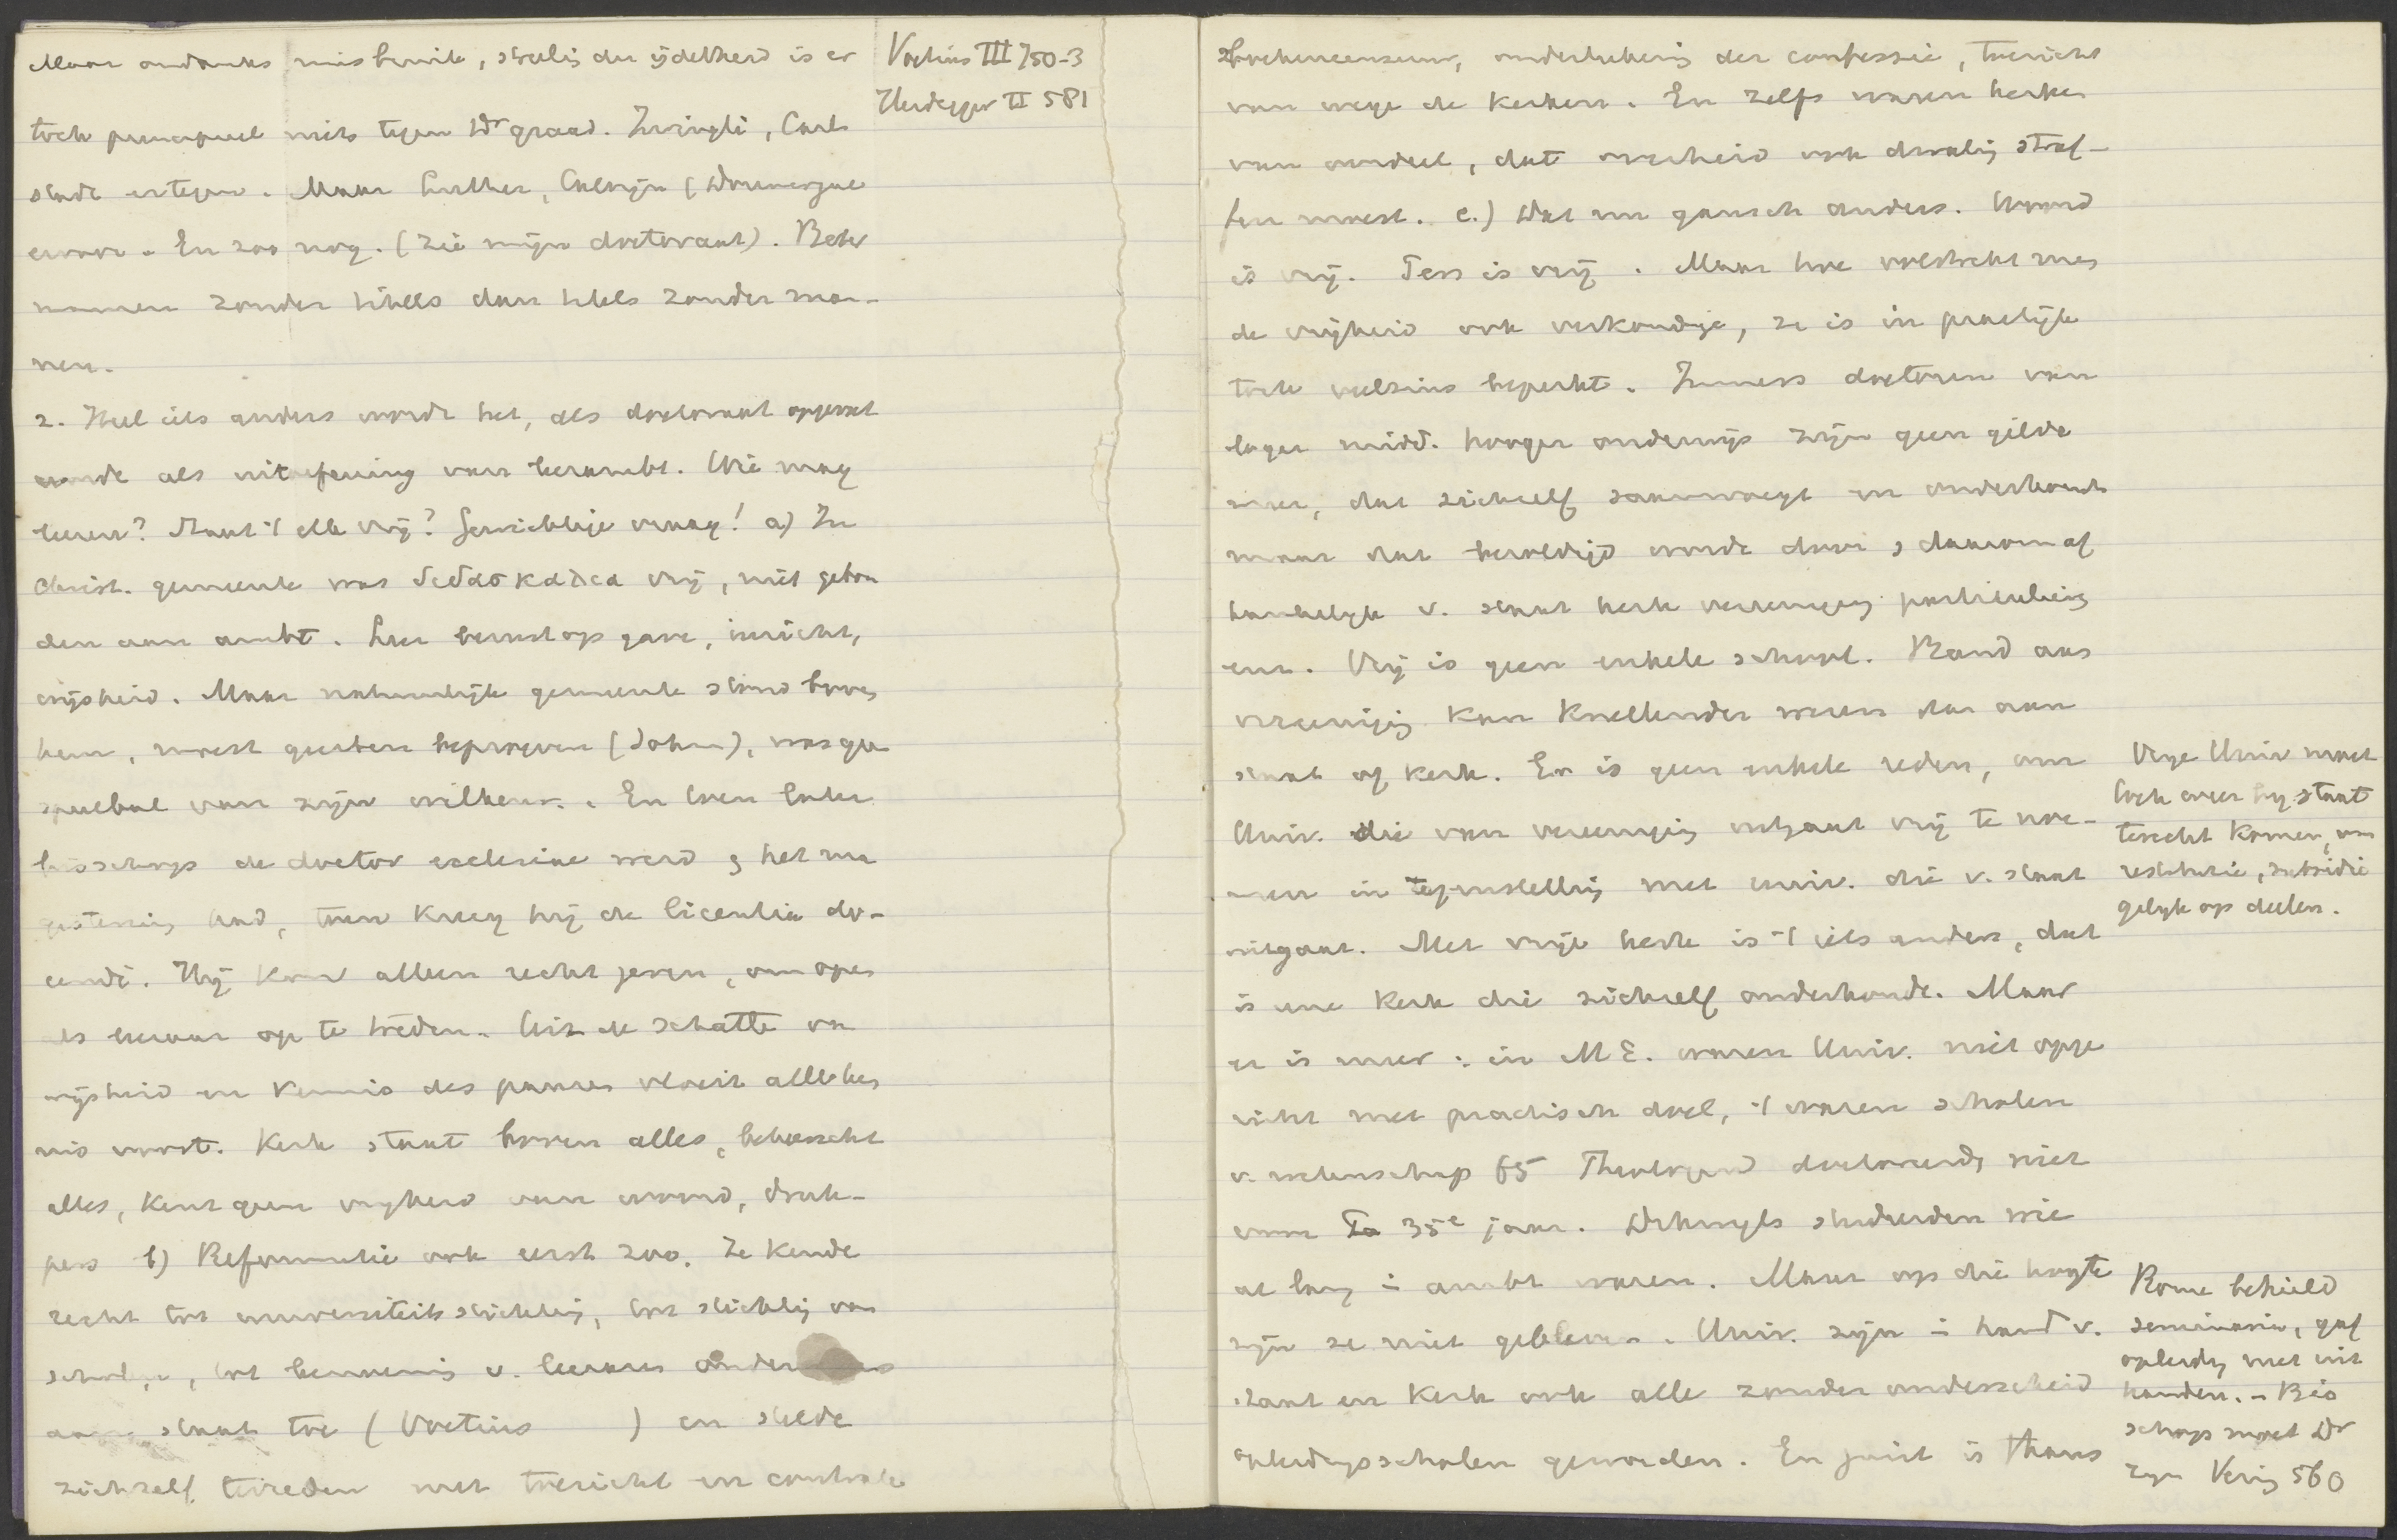 Maar ondanks misbruik, streelig der ijdelheid is er
toch principieel niets tegen Dr graad. Zwingli, Carl
stadt ertegen. Maar Luther, Calvijn (Doumergue
ervoor. En zoo nog. (Zie mijn doctoraat). Beter
mannen zonder titels dan titels zonder man-
nen.
Voetius III 750-3
Heidegger II 581
2. Heel iets anders wordt het, als doctoraat opgevat
wordt als uitoefening van leerambt. Wie mag
leeren? Staat 't elk vrij? Gewichtige vraag! a) In
Christ. gemeente was διδασκαλια vrij, niet gebon
den aan ambt. Leer berust op gave, inzicht,
wijsheid. Maar natuurlijk gemeente stond boven
hem, moest geesten beproeven (Joh), was geen
speelbal van zijn willekeur. En toen later
bisschop de doctor ecclesiae werd & het ma
gisterium had, toen kreeg hij de licentia do-
cendi. Hij kon alleen recht geven, om open
als leeraar op te treden. Uit de schatten van
wijsheid en kennis des pausen vloeit alle ken
nis voort. Kerk staat boven alles, beheerscht
alles, kent geen vrijheid van woord, druk-
pers b) Reformatie ook eerst zoo. Ze kende
recht tot universiteits stichting, tot stichting van
scholen, tot benoeming v. leeraars
aan staat toe (Voetius ) en stelde
zichzelf tevreden met toezicht en controle
Boekencensuur, onderteekening der confessie, toezicht
van wege de kerken. En zelfs waren kerken
van oordeel, dat overheid ook dwaling straf-
fen moest. c.) Dat nu gansch anders. Woord
is vrij. Pers is vrij. Maar hoe volstrekt men
de vrijheid ook verkondige, ze is in practijk
toch veelszins beperkt. Immers doctoren van
lager midd. hooger onderwijs zijn geen gilde
meer, dat zichzelf saamvoegt en onderhoudt
maar dat bezoldigd wordt door & daarom af
hankelijk v. staat kerk vereeniging particulier
enz. Vrij is geen enkele school. Band aan
vereeniging kan knellender wezen dan aan
staat of kerk. Er is geen enkele reden, om
Univ. die van vereeniging uitgaat vrij te noe-
men in tegenstelling met univ. die v. staat
uitgaat. Met vrije kerk is 't iets anders, dat
is eene kerk die zichzelf onderhoudt. Maar
er is meer: in M E. waren Univ. niet opge
richt met practisch doel, 't waren scholen
v. wetenschap 65 Theologen doctoreerde niet
voor 35e jaar. Dikwijls studeerden wie
al lang in ambt waren. Maar op die hoogte
zijn ze niet gebleven. Univ. zijn in hand v.
staat en kerk ook alle zonder onderscheid
opleidingsscholen geworden. En juist is thans
Vrije Univ moet
toch weer bij staat
terecht komen, om
restitutie, subsidie
gelijk op deelen.
Rome behield
seminaria, gaf
opleiding niet uit
handen. - Bis
schop moet Dr
zijn Vering 560